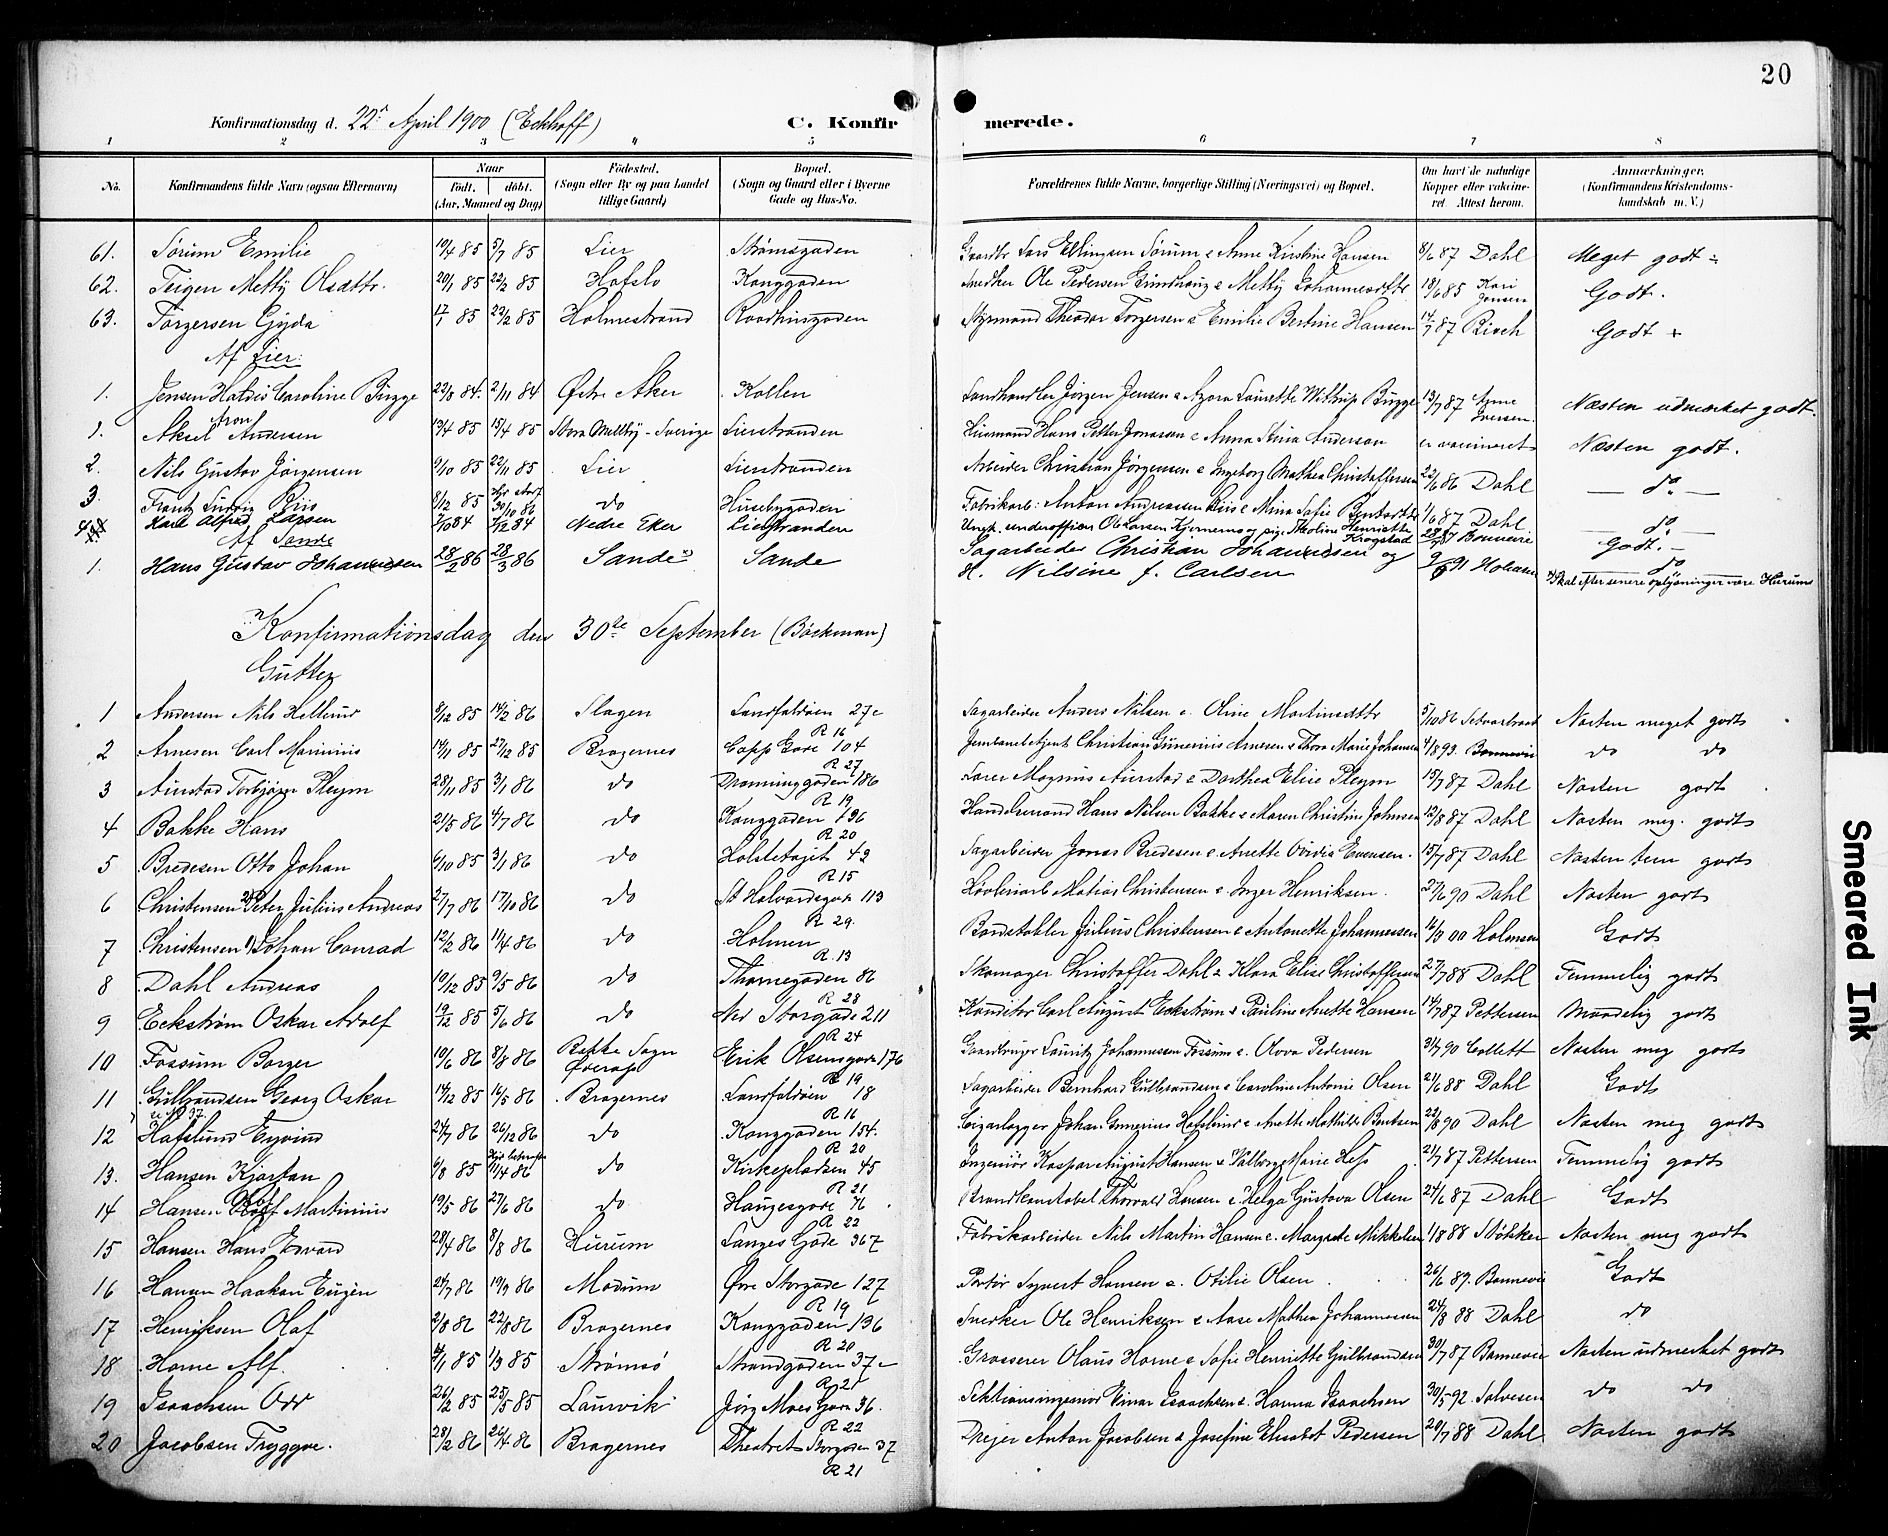 20
Konfirmationsdag d. 22n April 1900 (Eckhoff) C. Konfir merede.
1 2 3 4 5 6 7 8
No. Konfirmandens fulde Navn (ogsaa Efternavn) Naar født. døbt. (Aar, Maaned og Dag) Fødested. (Sogn eller By og paa Landet tillige Gaard) Bopæl. (Sogn og Gaard eller i Byerne Gade og Hus-No. Forældrenes fulde Navne, borgerlige Stilling (Næringsvei) og Bopæl. Om havt de naturlige Kopper eller vaccineret Attest herom. Anmærkninger. (Konfirmandens Kristendomskundskab m. V.)
61. Sørum Emilie 19/4 85 5/7 85 Lier Strømsgaden Gaardbr Lars Ellingsen Sørum & Anne Kirstine Hansen 8/6 87 Dahl Meget godt
62. Teigen Metty Olsdttr. 20/1 85 22/2 85 Hafslo Konggaden Snedker Ole Pedersen & Metty Johannesdttr 18/6 85 Kari Jensen Godt.
63. Torgersen Gyda 17/1 85 22/2 85 Holmestrand Raadhusgaden Styrmand Theodor Torgersen & Emilie Bertine Hansen 14/7 87 Risch Godt
Af Lier:
1. Jensen Haldis Caroline Bugge 22/8 84. 2/11 84 Østre Aker Kollen Landhandler Jørgen Jensen & Laurette Wittrup Bugge 13/7 87 Iversen Næsten udmærket godt.
1. Aksel Aron Andersen 19/4 85 15/4 85 Stora Mellby - Sverige Lierstranden Hans Petter Jonasson & Anna Stina Anderson er vaccineret Næsten godt.
2. Nils Gustav Jørgensen 9/10 85 22/11 85 Lier Lierstranden Arbeider Christian Jørgensen & Ingeborg Mathea Christoffersen 22/6 86 Dahl do
3. Frantz Ludvig Riis 8/12 85 30/10 86 do Husebygaden Fabrikarb. Anton Andreassen Riis & Mina Sofie Berntsdttr 1/6 87 Dahl. do
4 Karl Alfred Larsen 7/10 84 7/12 84 Nedre Eker Lierstranden Ungk. underofficer O. Larsen Kjernemo og pig. Nicoline Henriette Krogstad 28/7 87 Bonnevie Godt.
Af Sande
1. Hans Gustav Johannessen 28/2 86 28/3 86 Sande x) Sande Sagarbeider Christian Johannessen og H. Nilsine f. Carlsen 9/6 91 Holmsen do
x) Skal efter senere oplysninger være Hurum
Konfirmationsdag den 30te September (Böckman)
Gutter
1 Andersen Nils Hellund 8/12 85 14/2 86 Slagen Landfaldøen 27c R 16 Sagarbeider Anders Nilsen & Oline Martinsdttr 5/10 86 Næsten meget godt
2 Arnesen Carl Marinius 14/11 85 27/12 85 Bragernes Capp Gade 104 R 27 Jernbanebetjent Christian Gunerius Arnesen & Thora Marie Johansen 4/8 93. Bonnevie do do
3 Aurstad Torbjørn Pleym 28/11 85 3/1 86 do Dronninggaden 186 R 19 Magnus Aurstad & Dorthea Elise Pleym 15/7 87 Dahl Næsten godt
4 Bakke Hans 21/5 86 4/7 86 do Konggaden 196 R 20 Handelsmand Hans Nilsen Bakke & Maren Christine Johnsen 13/8 87 Dahl Næsten meg. godt
5 Bredesen Otto Johan 6/10 85 3/1 86 do Holstetajet 42 R 15 Sagarbeider Jonas Bredesen & Anette Ovidia Evensen. 15/7 87 Dahl Næsten tem godt
6 Christensen 2) Peter Julius Andreas 27/7 86 17/10 86 do St Halvardsgade 113 R 29 Høvleriarb Matias Christensen & Inger Henriksen. 27/6 90 Dahl Næsten godt
7 Christensen 1) Johan Conrad 12/2 86 11/4 86 do Holmen R. 13 Baadstabler Julius Christensen & Antonette Johannessen 16/9 00 Holmsen Godt
8 Dahl Andreas 10/12 85 9/5 86 do Thornegaden 86 R 28 Skomager Christoffer Dahl & Klara Elise Christoffersen 27/7 88 Dahl Temmelig godt
9 Eckstrøm Oskar Adolf 19/12 85 5/6 86 do Ned Storgade 211 R 24 Konditor Carl August Eckstrøm & Pauline Anette Hansen 14/7 87 Pettersen Maadelig godt
10 Fossum Borger 10/6 86 8/8 86 Bakke Sogn Erik Olsensgade 176 R 19 Gaardbruger Lauritz Johannessen Fossum & Olava Pedersen 31/7 90 Collett Næsten meg godt
11 Gulbrandsen Georg Oskar 14/12 85 16/5 86 Bragernes Landfaldøen 18 R 16 Sagarbeider Bernhard Gulbrandsen & Caroline Antonie Olsen 21/6 88 Dahl Godt
12 Hafslund Eyvind 24/7 86 26/12 86 do Konggaden 154. R 20 Cigarlægger Johan Gunerius Hafslund & Anette Mathilde Berntsen 22/8 90 Dahl Næsten meg godt
13. Hansen Kjartan 6/8 85 11/4 86 do Kirkepladsen 45 R 21 Ingeniør Kaspar August Hansen & Valborg Marie Hess 21/7 87 Pettersen Temmelig godt
14 Hansen Olaf Martinius 19/5 86 27/6 86 do Haugesgade 76 R 22 Brandkonstabel Thorvald Hansen & Helga Gustava Olsen 24/6 87 Dahl Godt
15 Hansen Hans Edvard 28/4 86 8/8 86 Hurum Langes Gade 367 Fabrikarbeider Nils Martin Hansen & Margrete Mikkelsen 1/8 88 Næsten meg godt
16 Hansen Haakon Eugen 24/7 86 19/9 86 Modum Øvre Storgade 127 R 19 Portør Syvert Hansen & Otilie Olsen 26/6 87. Bonnevie Godt
17 Henriksen Olaf 2/8 86 22/8 86 Bragernes Konggaden 136 R 20 Snedker Ole Henriksen & Aase Mathea Johannessen 24/8 88 Dahl do
18 Horne Alf. 4/1 85 1/3 85 Strømsø Strandgaden 37c R 21 Grosserer Olaus Horne & Sofie Henriette Gulbrandsen 30/7 87 Bonnevie Næsten udmerket godt
19 Isaachsen Odd 26/2 85 25/5 85 Laurvik Jørg Moes Gade 36. R 22 Sektionsingeniør Einar Isaachsen & Hanna Isaachsen 30/5 92. Salvesen do do
20 Jacobsen Tryggve. 28/2 86 26/4 86 Bragernes Theatret Storgaden 37 R 21 Drejer Anton Jacobsen & Josefine Elisabet Pedersen 20/7 88 Dahl Næsten godt
Smeared Ink